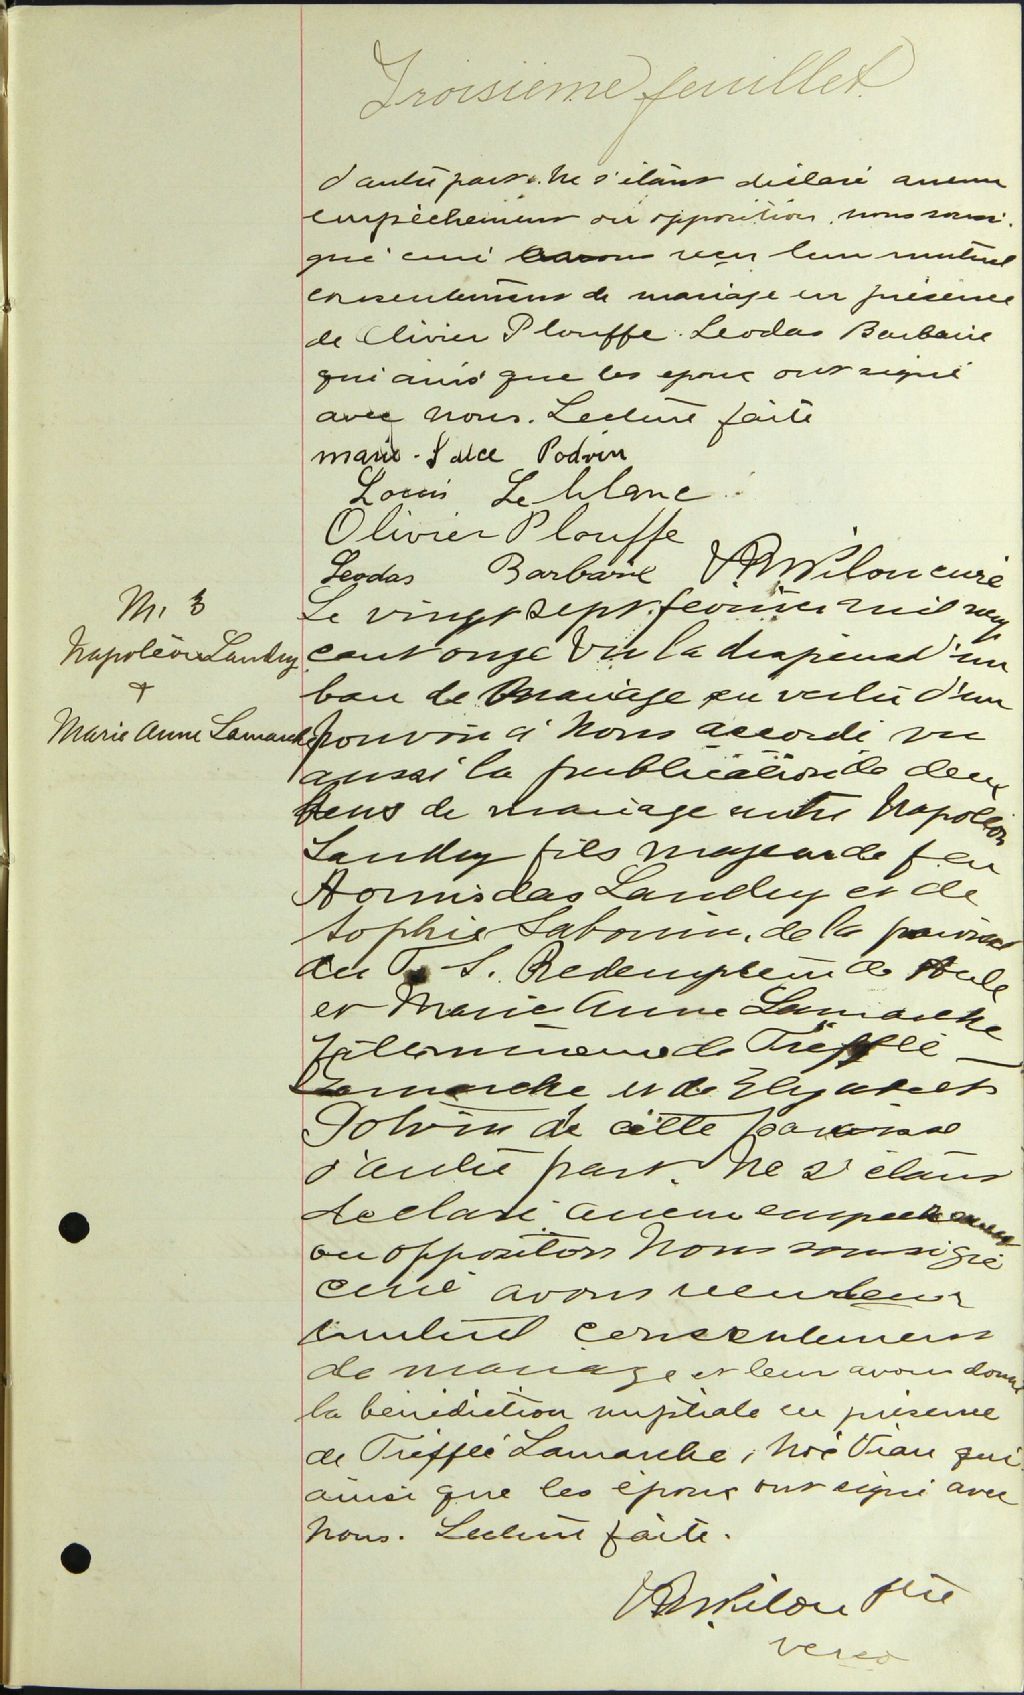 Troisième feuillet
d'autre part. Ne s'étant déclaré aucun
empêchement ou opposition, nous soussi-
gné curé avons reçu leur mutuel
consentement de mariage en présence
de Olivier Plouffe. Leodas Barbarie
qui ainsi que les epoux ont signé
avec nous. Lecture faite
Marie Podvin
Louis Leblanc
Olivier Plouffe
Leodas Barbarie Pilon curé
M. 3
Napoléon Landry
+
Marie Anne Lamarche
Le vingt sept fevrier mil neuf
cent onze Vu la dispense d'un
ban de mariage en vertu d'un
pouvoir à nous accordé vu
aussi la publication de deux
bans de mariage entre Napoléon
Landry fils majeur de feu
Hormisdas Landry et de
Sophie Sabourin, de la paroisse
du T. S. Redempteur de Hull
et Marie Anne Lamarche
fille mineure de Trefflé
Lamarche et de Elyzabeth
Potvin de cette paroisse
d'autre part. Ne s'étant
declaré aucun empechement
ou opposition Nous soussigné
curé avons reçu leur
mutuel consentement
de mariage et leur avons donné
la bénédiction nuptiale en présence
de Trefflé Lamarche, Noé Viau qui
ainsi que les époux ont signé avec
Nous. Lecture faite.
Pilon ptre
verso